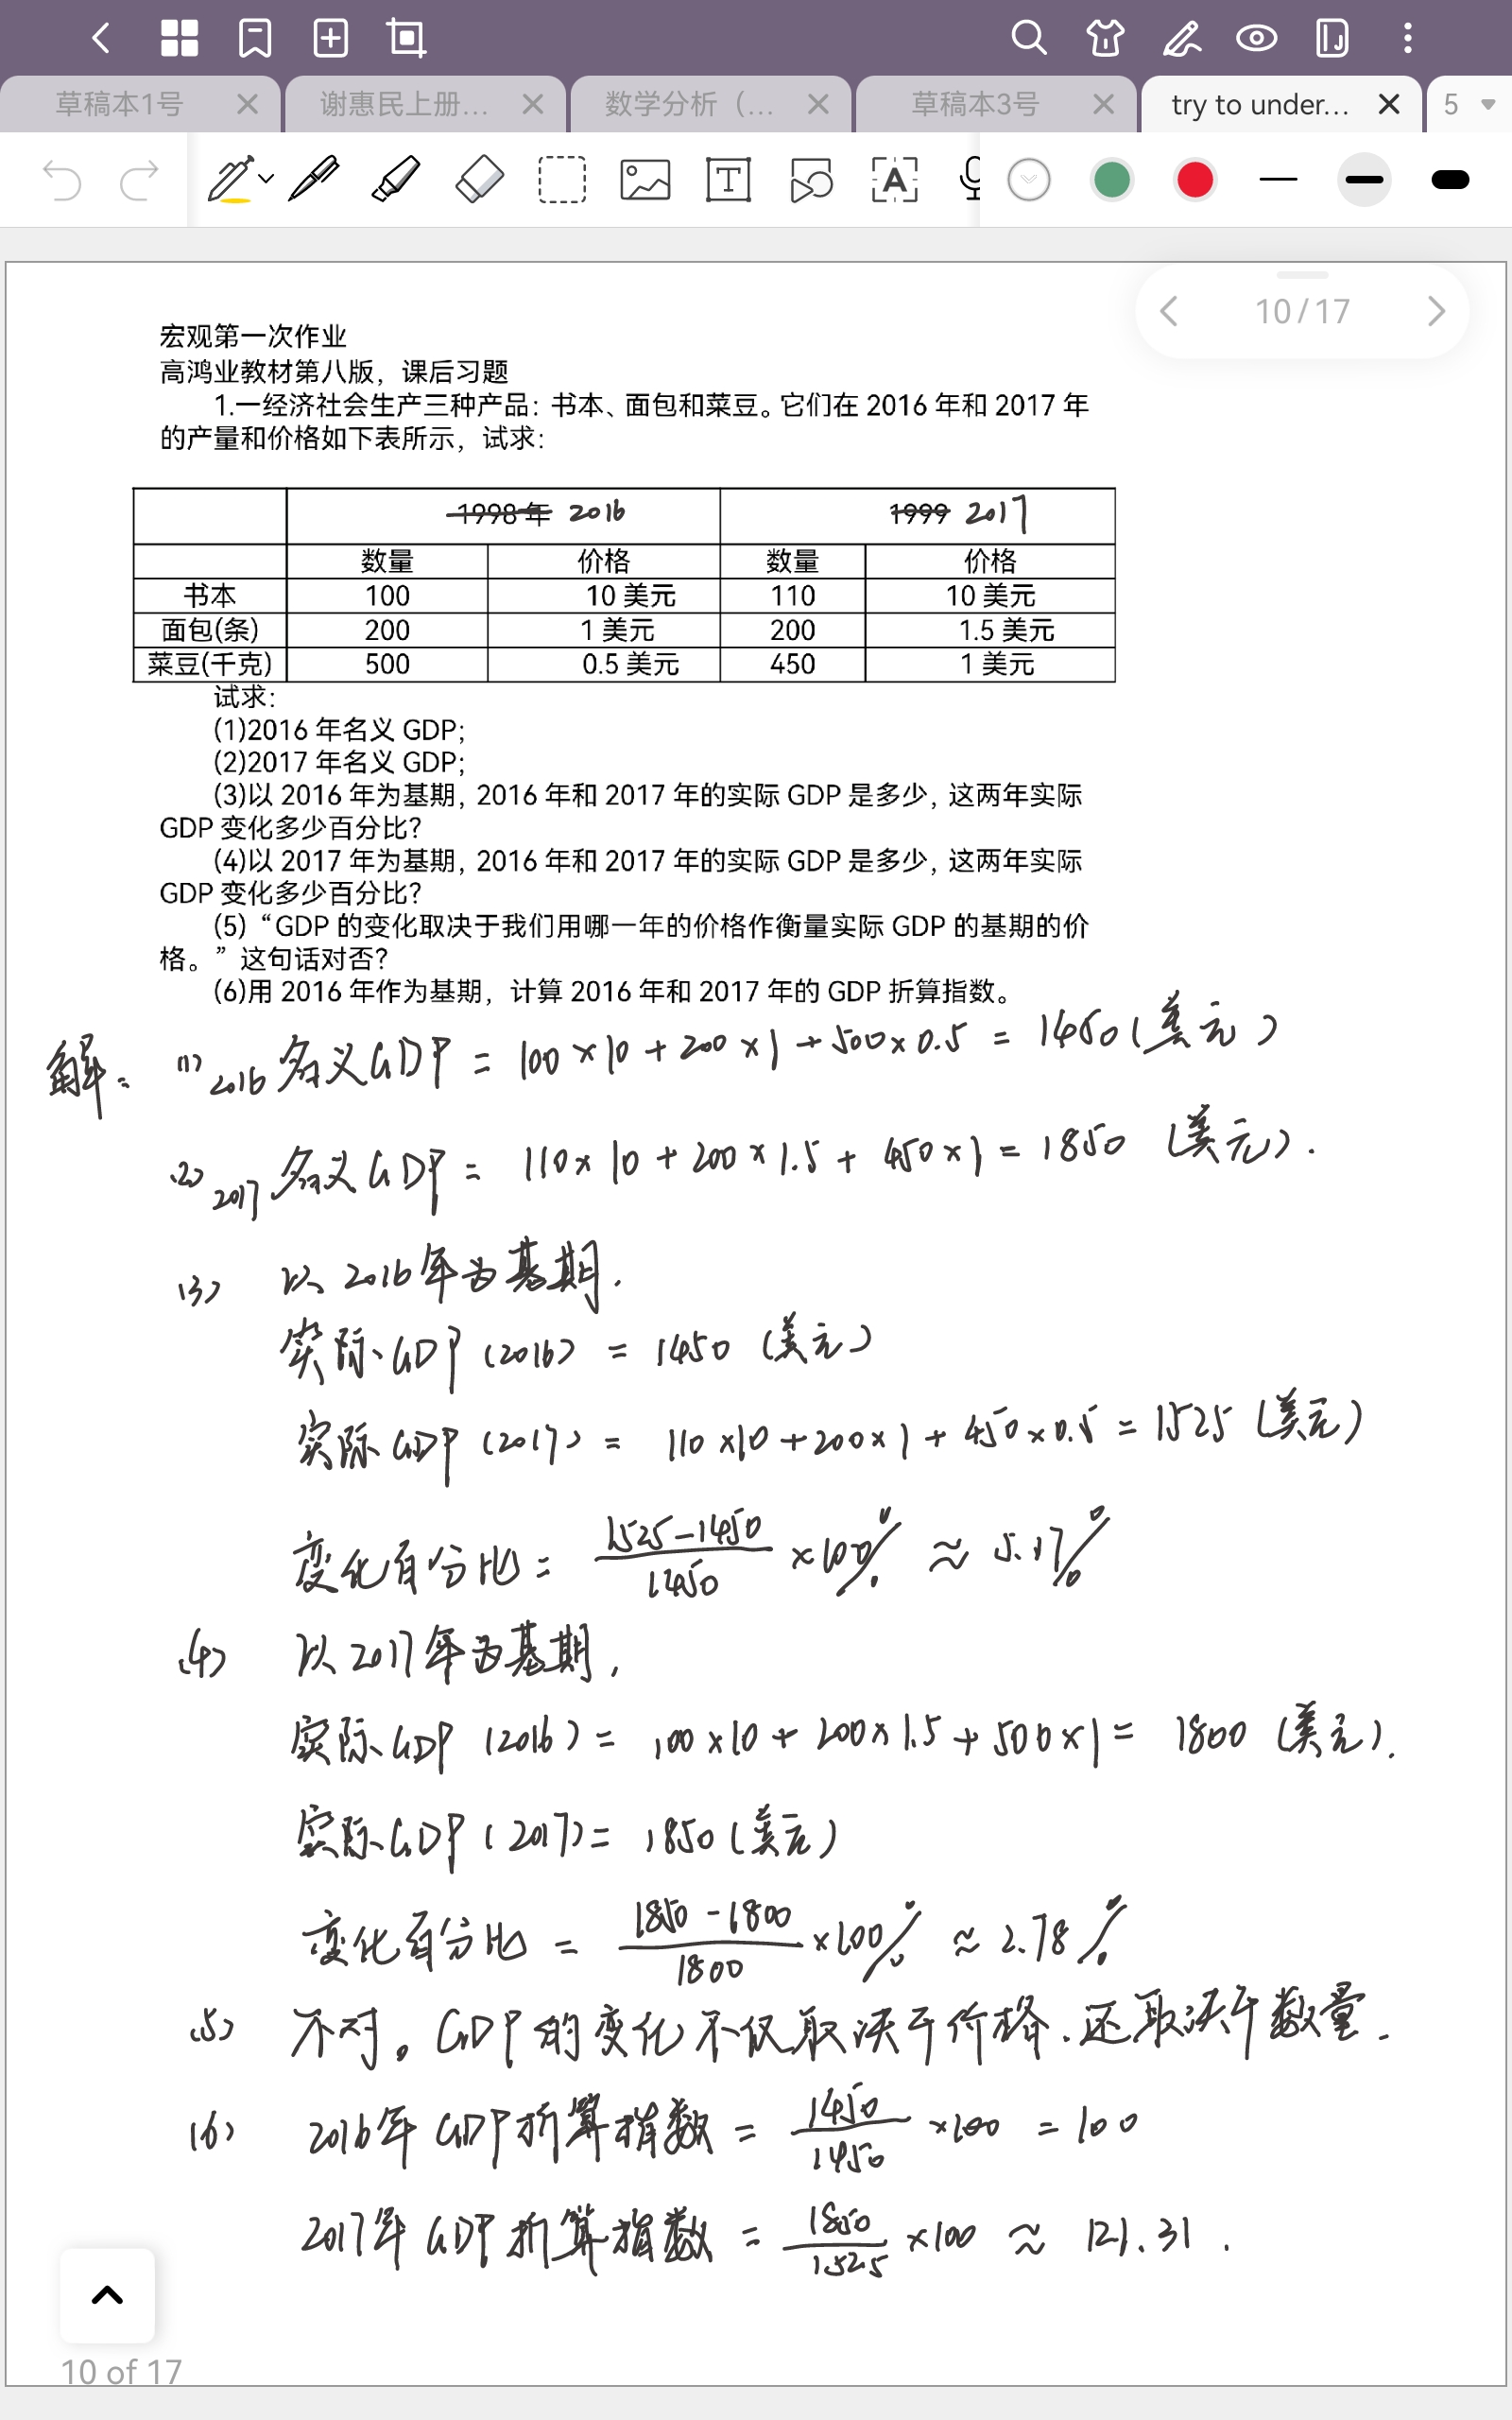 草稿本1号
谢惠民上册...
数学分析（...
草稿本3号
try to under...
5
10/17
宏观第一次作业
高鸿业教材第八版，课后习题
1.一经济社会生产三种产品：书本、面包和菜豆。它们在 2016 年和 2017 年
的产量和价格如下表所示，试求：
1998年 2016 1999 2017
数量 价格 数量 价格
书本 100 10 美元 110 10 美元
面包(条) 200 1 美元 200 1.5 美元
菜豆(千克) 500 0.5 美元 450 1 美元
试求：
(1)2016 年名义 GDP;
(2)2017 年名义 GDP;
(3)以 2016 年为基期，2016 年和 2017 年的实际 GDP 是多少，这两年实际
GDP 变化多少百分比？
(4)以 2017 年为基期，2016 年和 2017 年的实际 GDP 是多少，这两年实际
GDP 变化多少百分比？
(5)“GDP 的变化取决于我们用哪一年的价格作衡量实际 GDP 的基期的价
格。”这句话对否？
(6)用 2016 年作为基期，计算 2016 年和 2017 年的 GDP 折算指数。
解： (1) 2016 名义GDP = 100×10 + 200×1 + 500×0.5 = 1450（美元）
(2) 2017 名义GDP = 110×10 + 200×1.5 + 450×1 = 1850（美元）.
(3) 以 2016年为基期.
实际GDP（2016）= 1450（美元）
实际GDP（2017）= 110×10+200×1+450×0.5=1525（美元）
变化百分比 = (1525-1450)/1450 ×100% ≈ 5.17%
(4) 以 2017年为基期,
实际GDP（2016）= 100×10 + 200×1.5 + 500×1 = 1800（美元）.
实际GDP（2017）= 1850（美元）
变化百分比 = (1850-1800)/1800 ×100% ≈ 2.78%
(5) 不对。GDP的变化不仅取决于价格.还取决于数量.
(6) 2016年GDP折算指数 = 1450/1450 ×100 = 100
2017年GDP折算指数 = 1850/1525 ×100 ≈ 121.31.
10 of 17